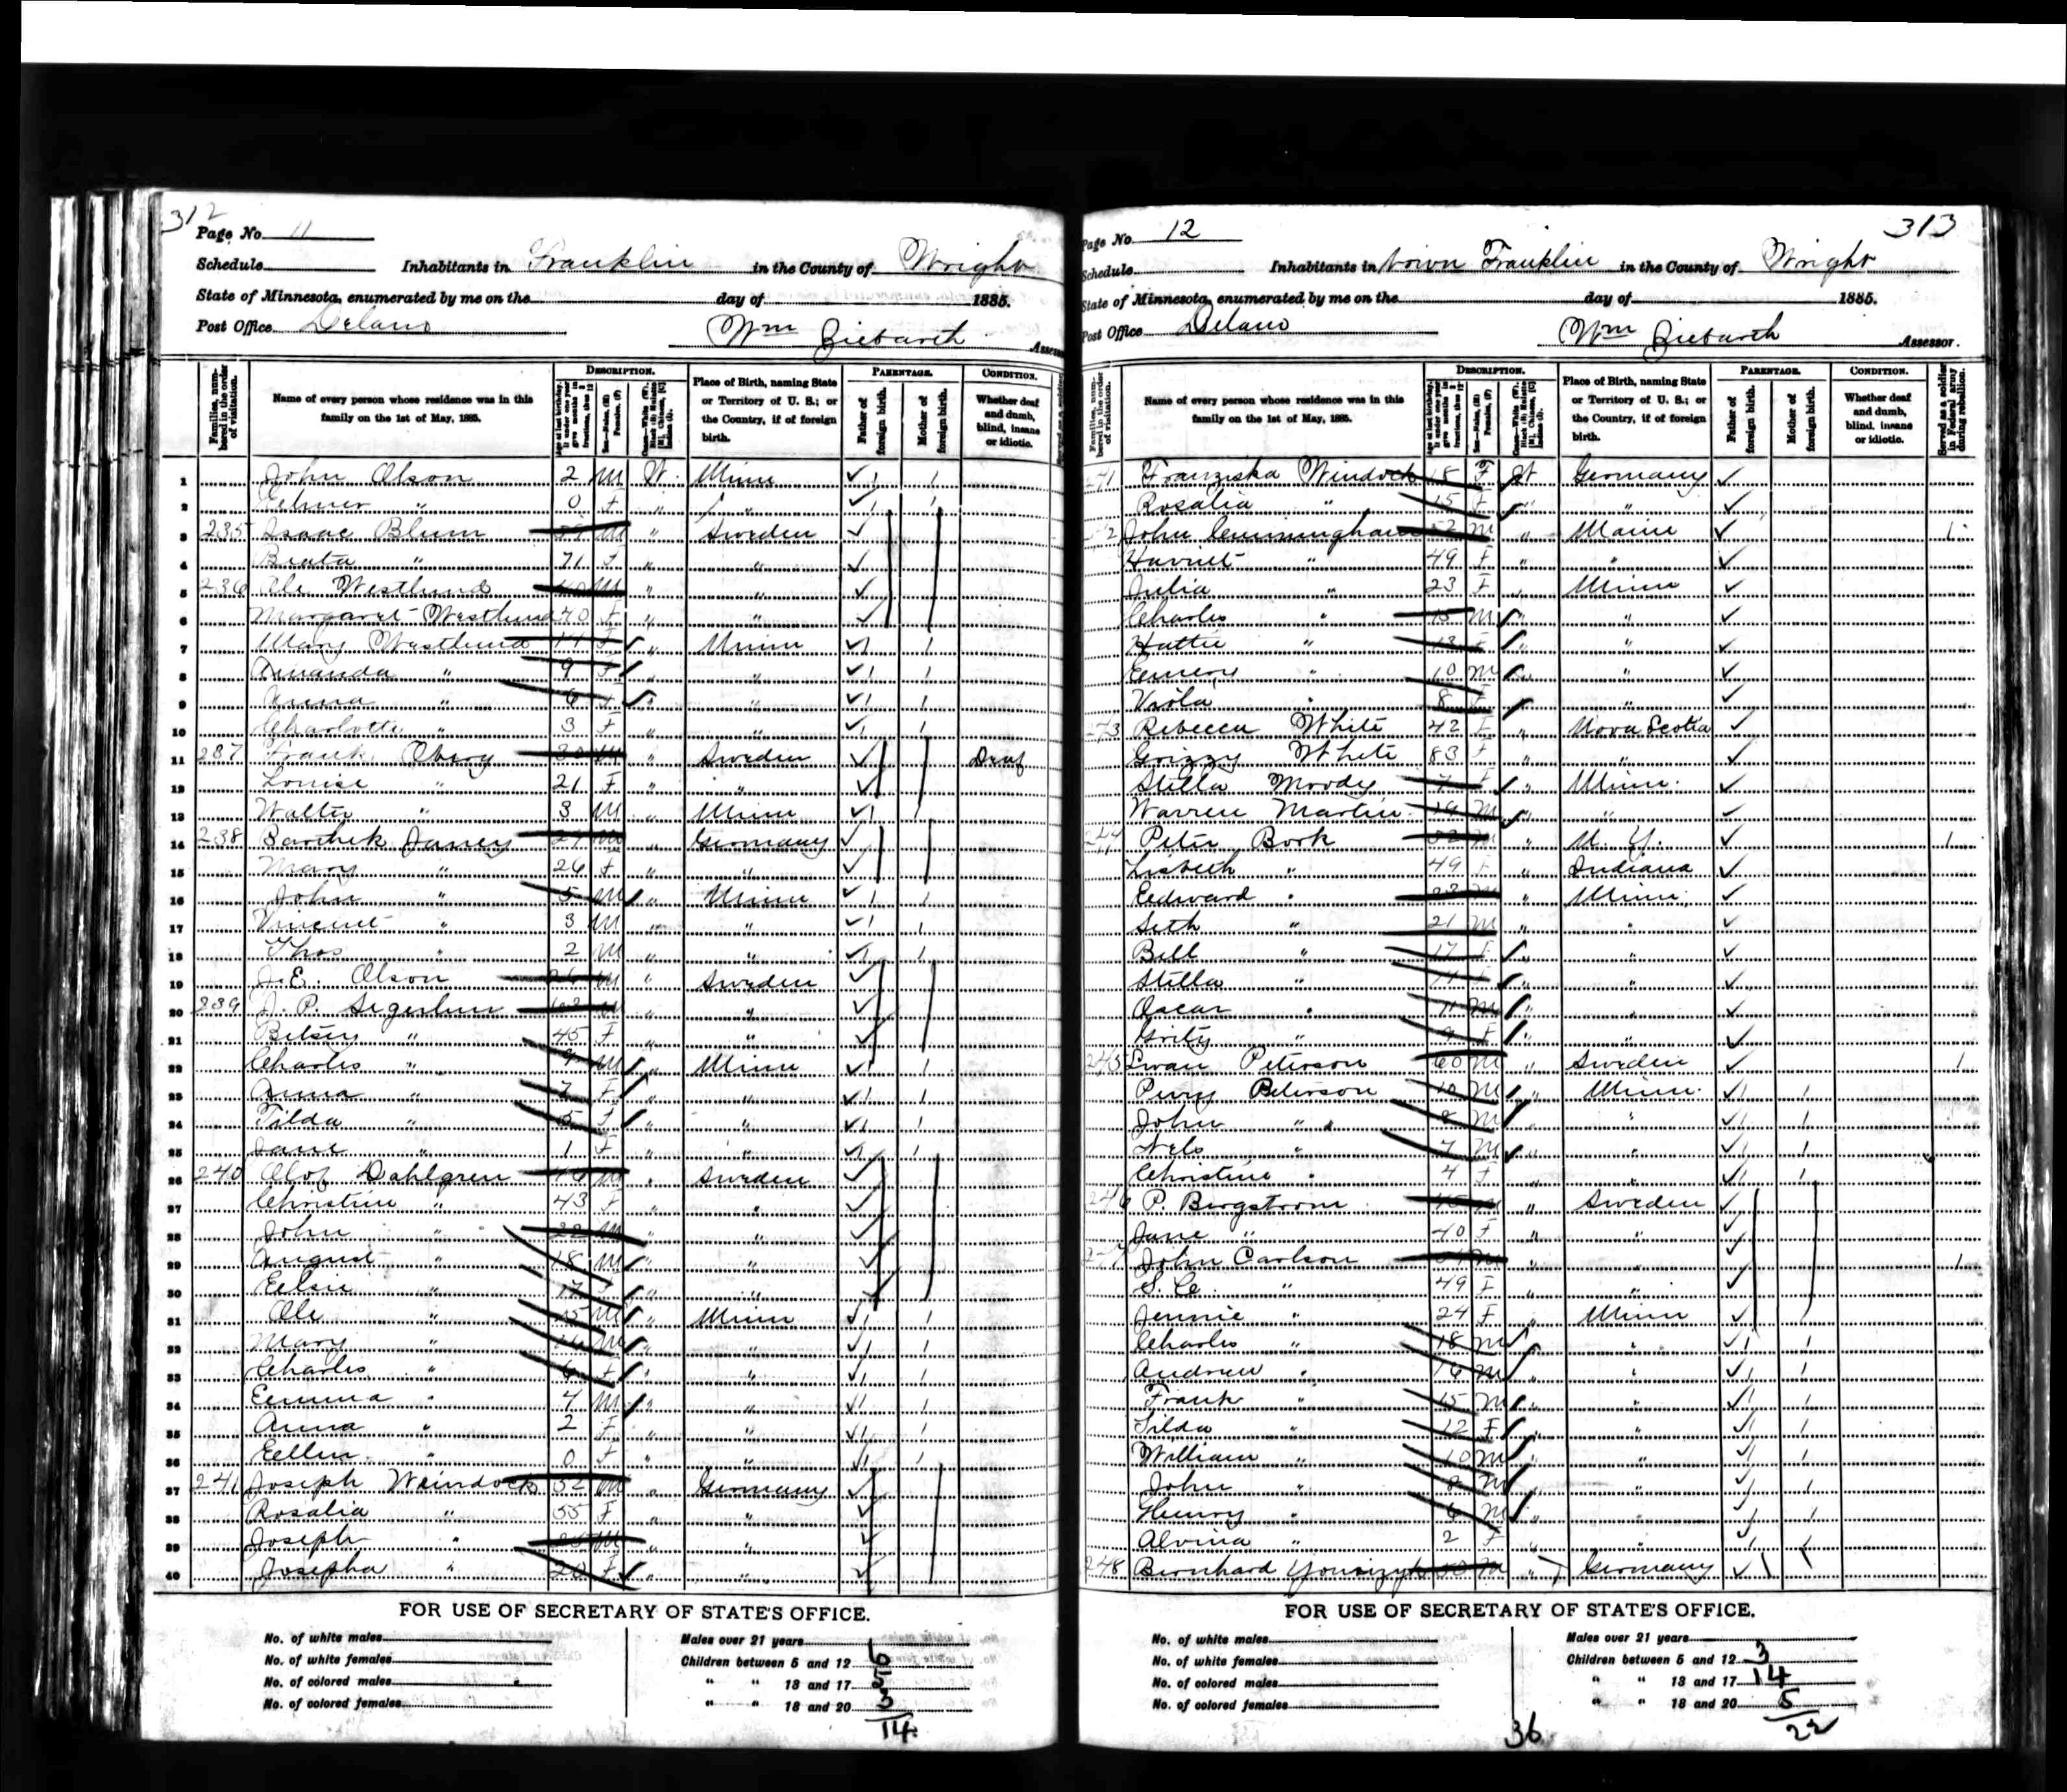 312
Page No. 11
Schedule Inhabitants in Franklin in the County of Wright
State of Minnesota, enumerated by me on the day of 1885.
Post Office Delano Wm Ziebarth Assessor
Families, numbered in the order of visitation.
Name of every person whose residence was in this family on the 1st of May, 1885.
DESCRIPTION.
Place of Birth, naming State or Territory of U. S.; or the Country, if of foreign birth.
PARENTAGE.
Father of foreign birth.
Mother of foreign birth.
CONDITION.
Whether deaf and dumb, blind, insane or idiotic.
1 John Olson 2 M W. Minn
2 " 0 F " "
3 235 Isaac Blum M " Sweden
4 Beata " 71 F " "
5 236 Ole Westlund M "
6 Margaret Westlund 40 F " "
7 Mary Westlund F " Minn
8 Amanda " 9 F " "
9 Anna " 6 F " "
10 Charlotte " 3 F " "
11 237 Frank Oberg M " Sweden Deaf
12 Louise " 21 F " "
13 Walter " 3 M " Minn
14 238 Janey M " Germany
15 Mary " 26 F " "
16 John " 5 M " Minn
17 Vincent " 3 M " "
18 Thos " 2 M " "
19 J. E. Olson M " Sweden
20 239 J. P. M " "
21 Betsey " 45 F " "
22 Charles " 9 M " Minn
23 Anna " 7 F "
24 Tilda " 5 F " "
25 Jane " 1 F " "
26 240 Olof Dahlgren 46 M " Sweden
27 Christine " 43 F "
28 John " 22 M " "
29 August " 18 M " "
30 Elsie " 17 F " "
31 Ole " 15 M " Minn
32 Mary " M " "
33 Charles " 6 F " "
34 Emma " 4 M " "
35 Anna " 2 F "
36 Eellen " 0 F " "
37 241 Joseph Weindock 52 M " Germany
38 Rosalia " 55 F "
39 Joseph " M "
40 Josepha " 20 F " "
FOR USE OF SECRETARY OF STATE'S OFFICE.
No. of white males
No. of white females
No. of colored males
No. of colored females
Males over 21 years
Children between 5 and 12 6
" " 13 and 17 5
" " 18 and 20 3
14
313
Page No. 12
Schedule Inhabitants in town Franklin in the County of Wright
State of Minnesota, enumerated by me on the day of 1885.
Post Office Delano Wm Ziebarth Assessor.
Families, numbered in the order of visitation.
Name of every person whose residence was in this family on the 1st of May, 1885.
DESCRIPTION.
Place of Birth, naming State or Territory of U. S.; or the Country, if of foreign birth.
PARENTAGE.
Father of foreign birth.
Mother of foreign birth.
CONDITION.
Whether deaf and dumb, blind, insane or idiotic.
Served as a soldier in Federal army during rebellion.
241 Franziska Windock 18 F W Germany
Rosalia " 15 F " "
John Cunningham 52 M " Maine 1
Harriet " 49 F " "
Julia " 23 F " Minn
Charles " 15 M " "
Hattie " 13 F " "
Emery " 10 M " "
Viola " 8 F "
243 Rebecca White 42 F " Nova Scotia
Grizzy White 83 F " "
Stella Moody 7 F " Minn.
Warren Martin 19 M " "
244 Peter Bork 52 M " N. Y. 1
Lisbeth " 49 F " Indiana
Eedward " 23 M " Minn.
Seth " 21 M " "
Bell " 17 F " "
Stella " F " "
Oscar " 11 M " "
" 9 F " "
245 Swan Peterson 60 M " Sweden 1
Perry Peterson 10 M " Minn.
John " 8 M "
Nels " 7 M " "
Christine " 4 F "
246 P. Bergstrom M " Sweden
Jane " 40 F " "
247 John Carlson M " 1
S. C. " 49 F " "
Jennie " 24 F " Minn
Charles " 18 M "
Andrew " 16 M " "
Frank " 15 M " "
Tilda " 12 F " "
William " 10 M " "
John " 8 M " "
Henry " 6 M " "
Alvina " 2 F "
248 Bernhard M " Germany
FOR USE OF SECRETARY OF STATE'S OFFICE.
No. of white males
No. of white females
No. of colored males
No. of colored females
Males over 21 years
Children between 5 and 12 3
" " 13 and 17 14
" " 18 and 20 5
22
36